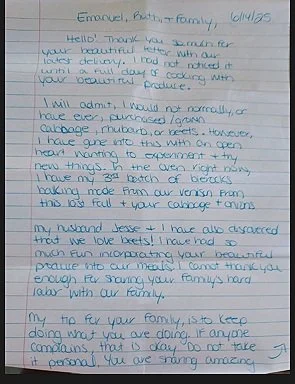 Emanuel, Ruth, + Family, 6/14/25
Hello! Thank you so much for
your beautiful letter with our
latest delivery. I had not noticed it
until a full day of cooking with
your beautiful produce.
I will admit, I would not normally, or
have ever, purchased/grown
cabbage, rhubarb, or beets. However,
I have gone into this with an open
heart wanting to experiment + try
new things. In the oven right now,
I have my 3rd batch of bierocks
baking made from our venison from
this last fall + your cabbage + onions
My husband Jesse + I have also discovered
that we love beets! I have had so
much fun incorporating your beautiful
produce into our meals! I cannot thank you
enough for sharing your family's hard
labor with our family.
My tip for your family, is to keep
doing what you are doing. If anyone
complains, that is okay. Do not take
it personal. You are sharing amazing